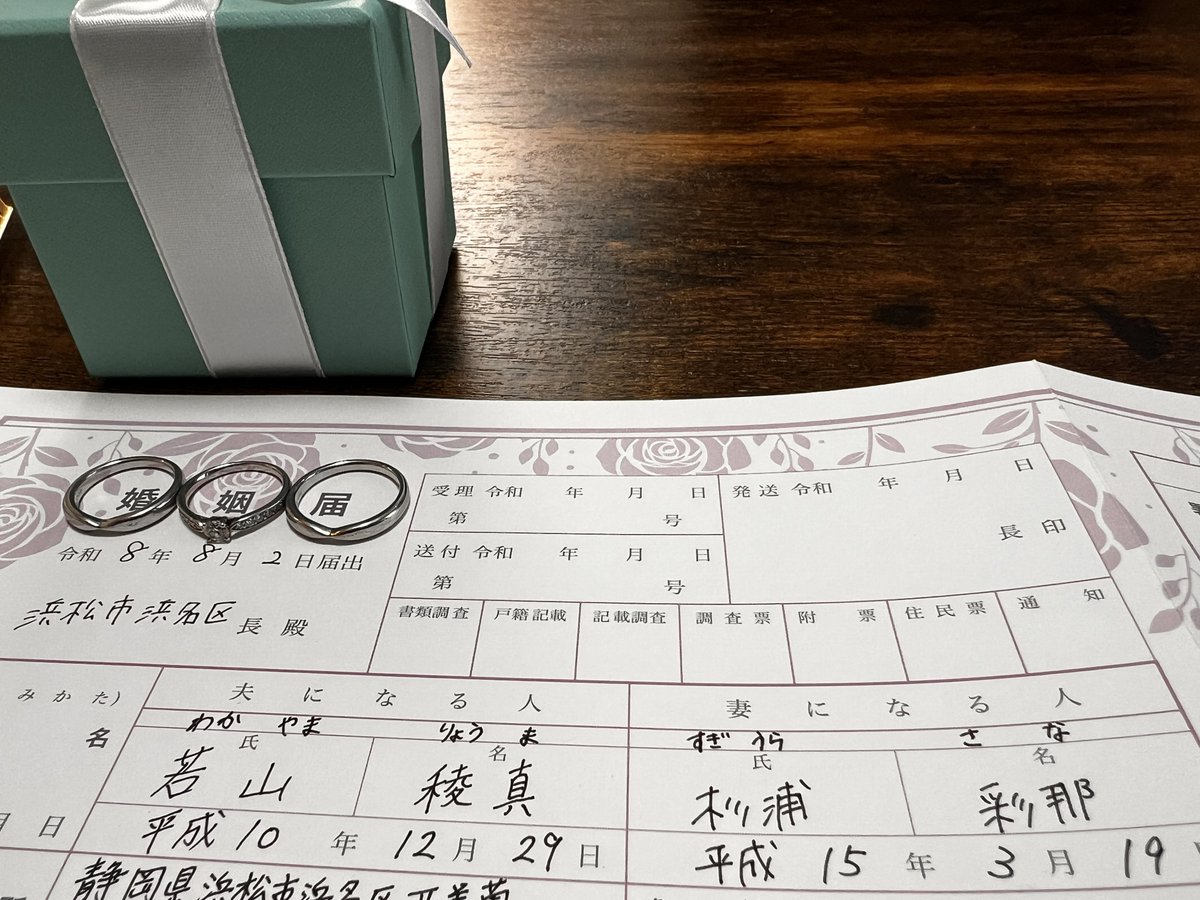 婚姻届
令和 8 年 8 月 2 日届出
浜松市浜名区 長 殿
受理 令和 年 月 日
第 号
発送 令和 年 月 日
長印
送付 令和 年 月 日
第 号
書類調査 戸籍記載 記載調査 調査票 附票 住民票 通知
みかた)
夫になる人 妻になる人
わか やま りょう ま すぎ うら さ な
名 氏 名 氏 名
若山 稜真 杉浦 彩那
月 日 平成 10 年 12 月 29 日 平成 15 年 3 月 19 日
静岡県浜松市浜名区